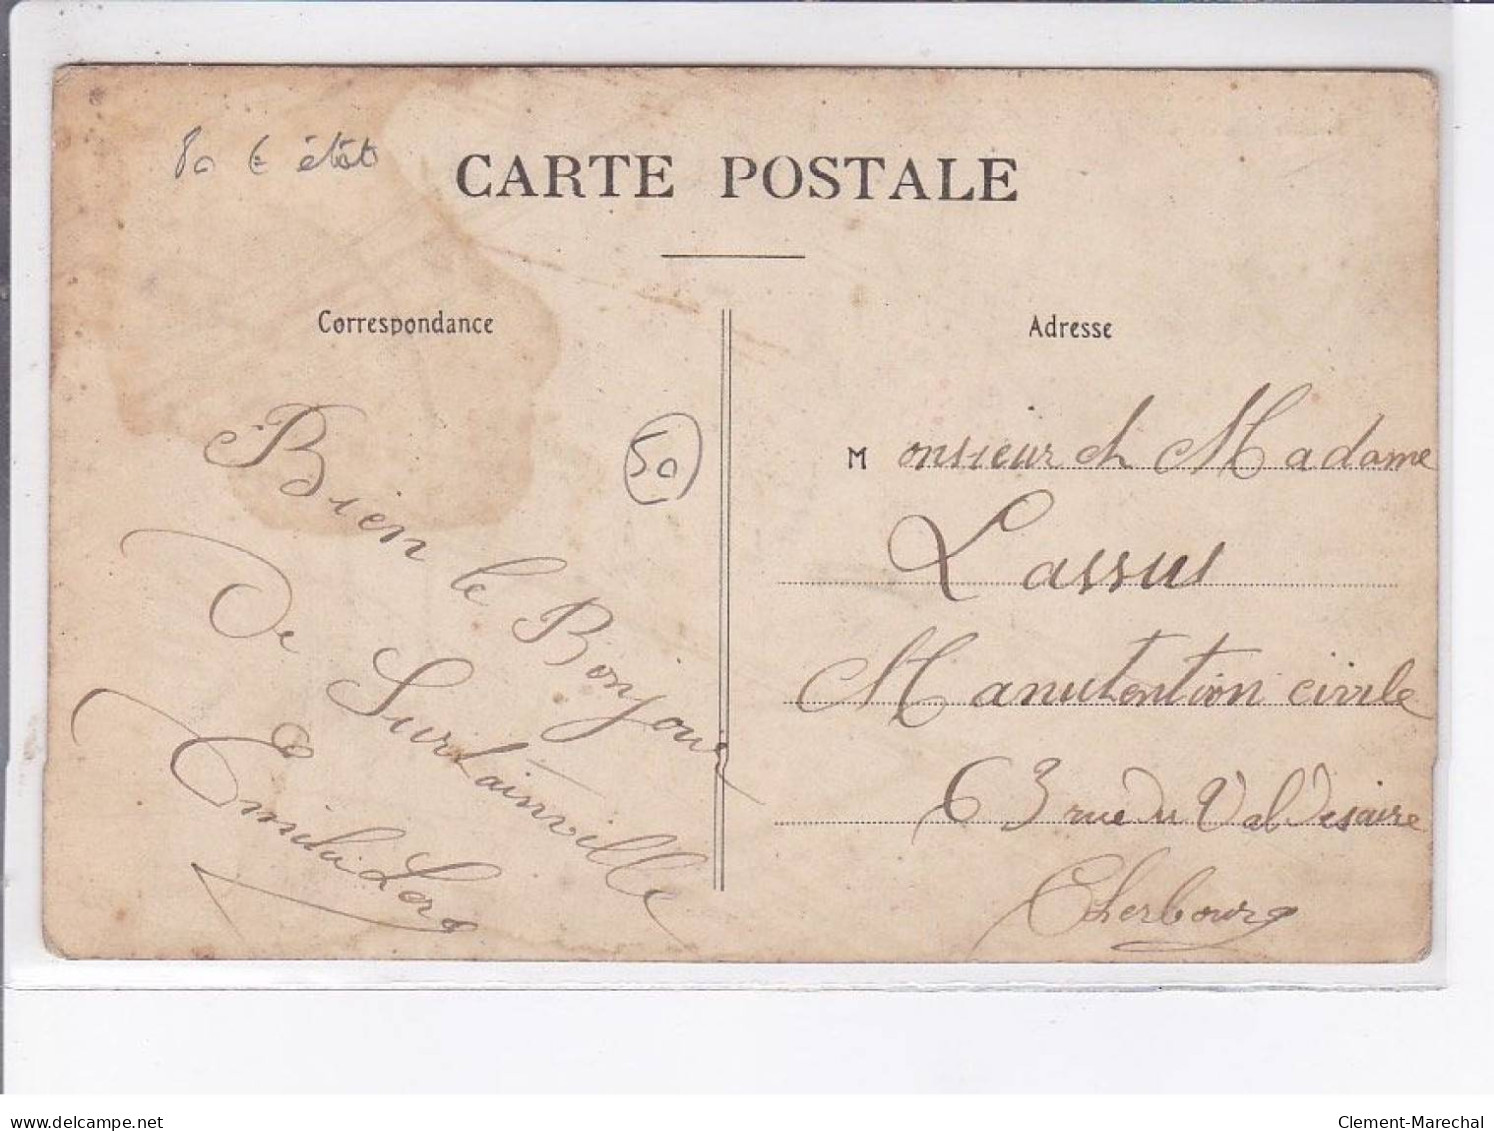 80 € état
CARTE POSTALE
Correspondance
Adresse
50
Bien le Bonjour
De Surtainville
Emile
Monsieur et Madame
Lassus
Manutention civile
63 rue du Val De saire
Cherbourg
delcampe.net
Clement-Marechal